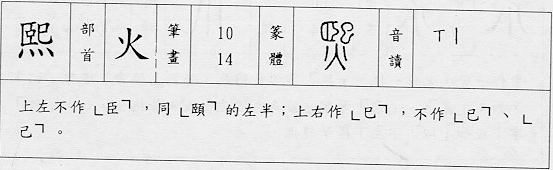 熙 部首 火 筆畫 10 14 篆體 音讀 ㄒㄧ
上左不作「臣」，同「頤」的左半；上右作「巳」，不作「已」、「
己」。